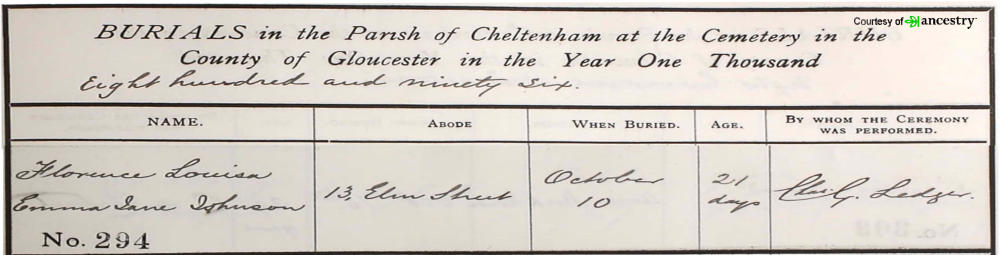 Courtesy of ancestry
BURIALS in the Parish of Cheltenham at the Cemetery in the
County of Gloucester in the Year One Thousand
Eight hundred and ninety six.
NAME. ABODE WHEN BURIED. AGE. BY WHOM THE CEREMONY WAS PERFORMED.
Florence Louisa
Emma Jane Johnson
No. 294
13, Elm Street
October
10
21
days
Ledger.